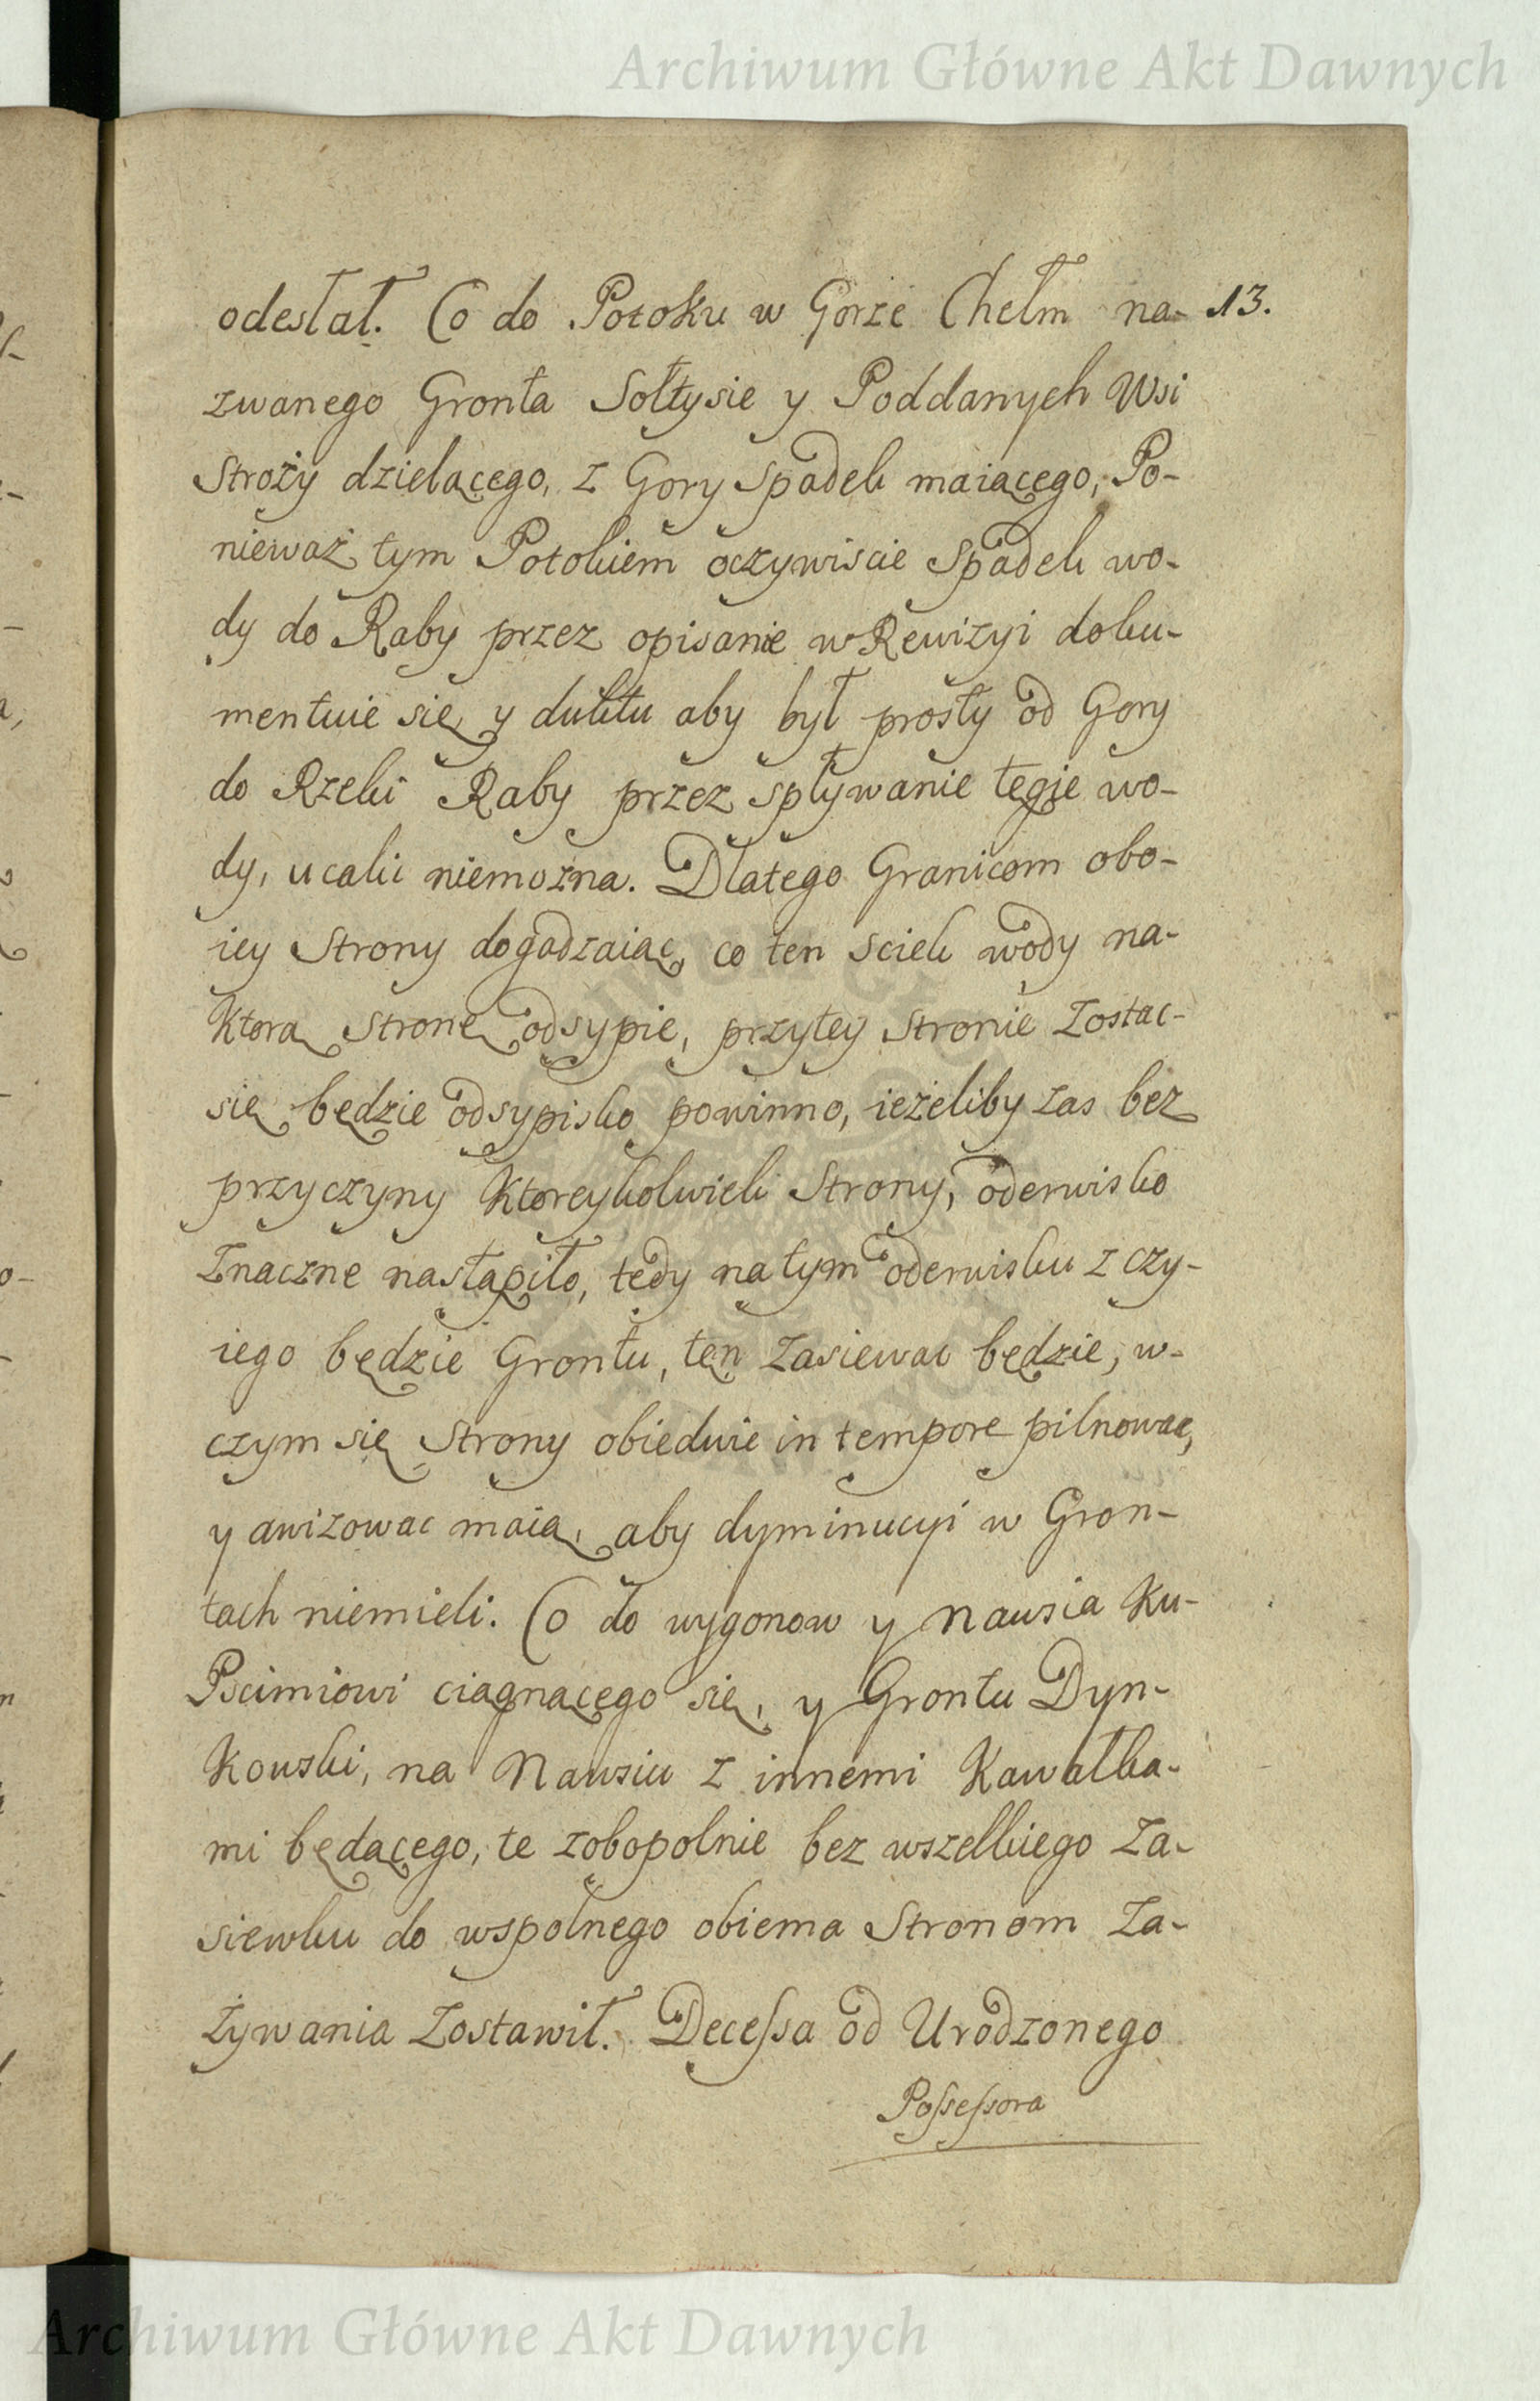 Archiwum Główne Akt Dawnych
odesłał. Co do Potoku w Gorze Chełm na- 13.
zwanego Gronta Sołtysie y Poddanych Wsi
Stroży dzielącego, z Gory Spadek maiącego, Po-
nieważ tym Potokiem oczywiscie Spadek wo-
dy do Raby przez opisanie w Rewizyi doku-
mentuie się y duktu aby był prosty od Gory
do Rzeki Raby przez spływanie tegie wo-
dy, ucalic niemożna. Dlatego Granicom obo-
iey Strony dogadzaiąc, co ten sciek wody na-
Ktorą Stronę odsypie, przytey Stronie Zostac-
się będzie odsypisko powinno, ieżeliby zas bez
przyczyny Ktoreykolwiek Strony, oderwisko
Znaczne nastąpiło, tedy na tym oderwisku z czy-
iego będzie Grontu, ten Zasiewac będzie, w-
czym się Strony obiedwie in tempore pilnowac,
y awizowac maią, aby dyminucyi w Gron-
tach niemieli. Co do wygonow y Nawsia Ku-
Pscimiowi ciągnącego się, y Grontu Dyn-
Kowski, na Nawsiu z innemi Kawałka-
mi będącego, te zobopolnie bez wszelkiego Za-
siewku do wspolnego obiema Stronom Za-
żywania Zostawił. Decessa od Urodzonego
Possessora
Archiwum Główne Akt Dawnych